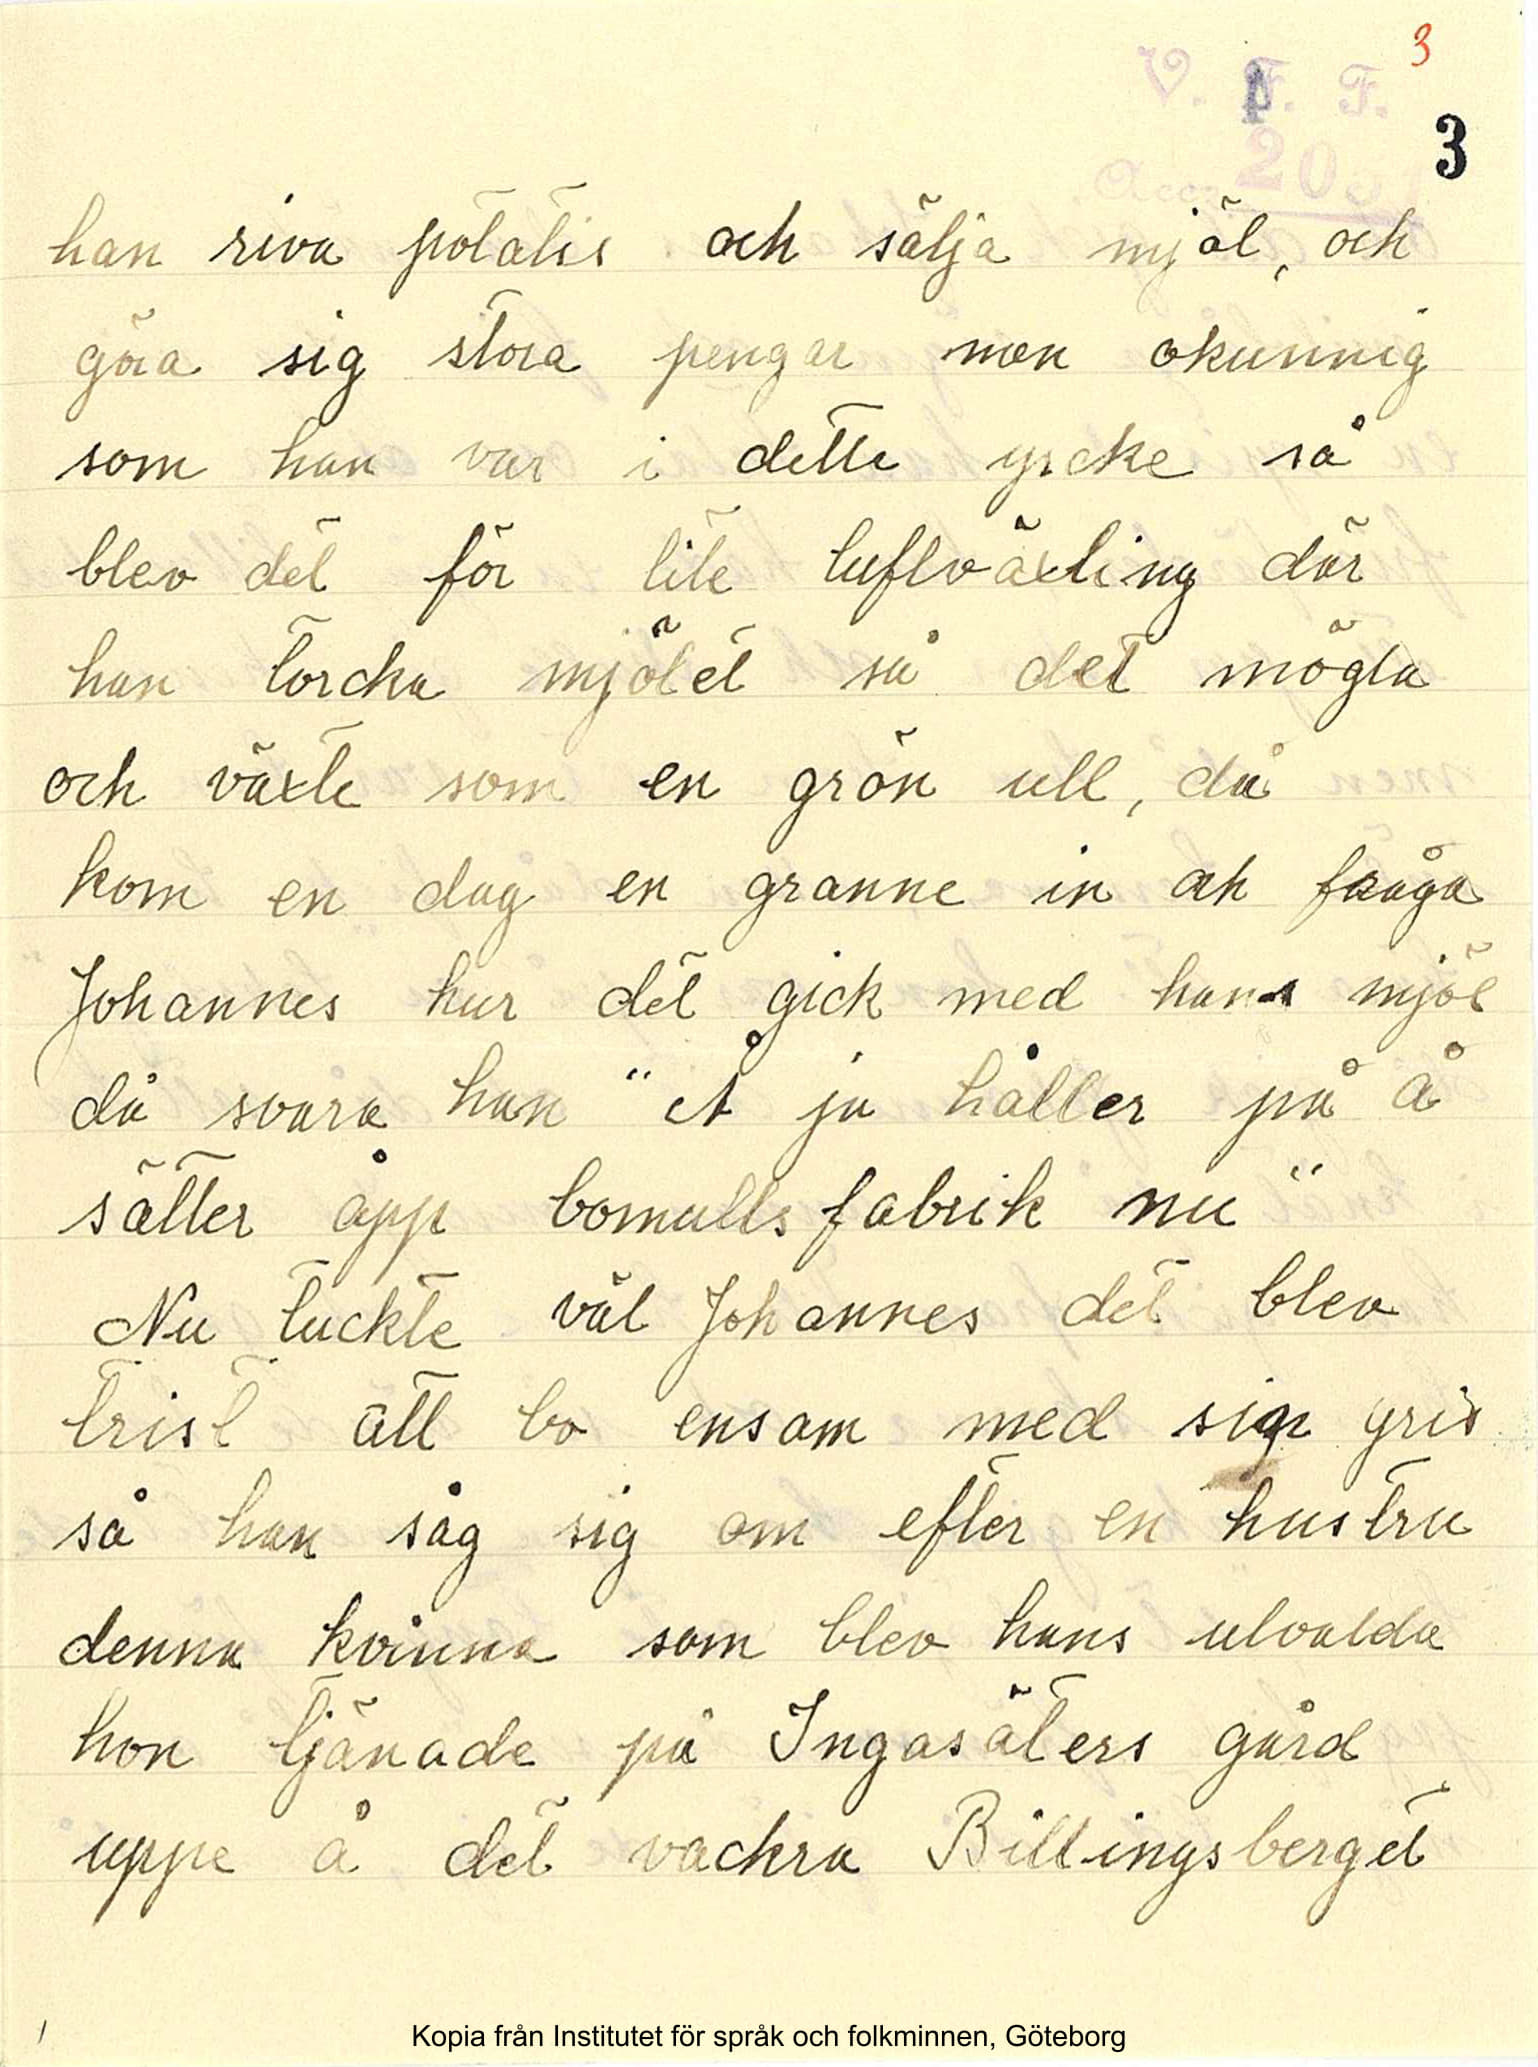 3
V. F. F.
3
Acc. 2031
han riva potatis och sälja mjöl, och
göra sig stora pengar men okunnig
som han var i dette yrcke så
blev det för lite luftväxling där
han torcka mjölet så det mögla
och växte som en grön ull, då
kom en dag en granne in och fråga
Johannes hur det gick med hans mjöl
då svara han "Å ja håller på å
sätter åpp bomulls fabrik nu"
Nu tuckte väl Johannes det blev
trist att bo ensam med sin gris
så han såg sig om efter en hustru
denna kvinna som blev hans utvalda
hon tjänade på Ingasäters gård
uppe å det vackra Billingsberget
Kopia från Institutet för språk och folkminnen, Göteborg